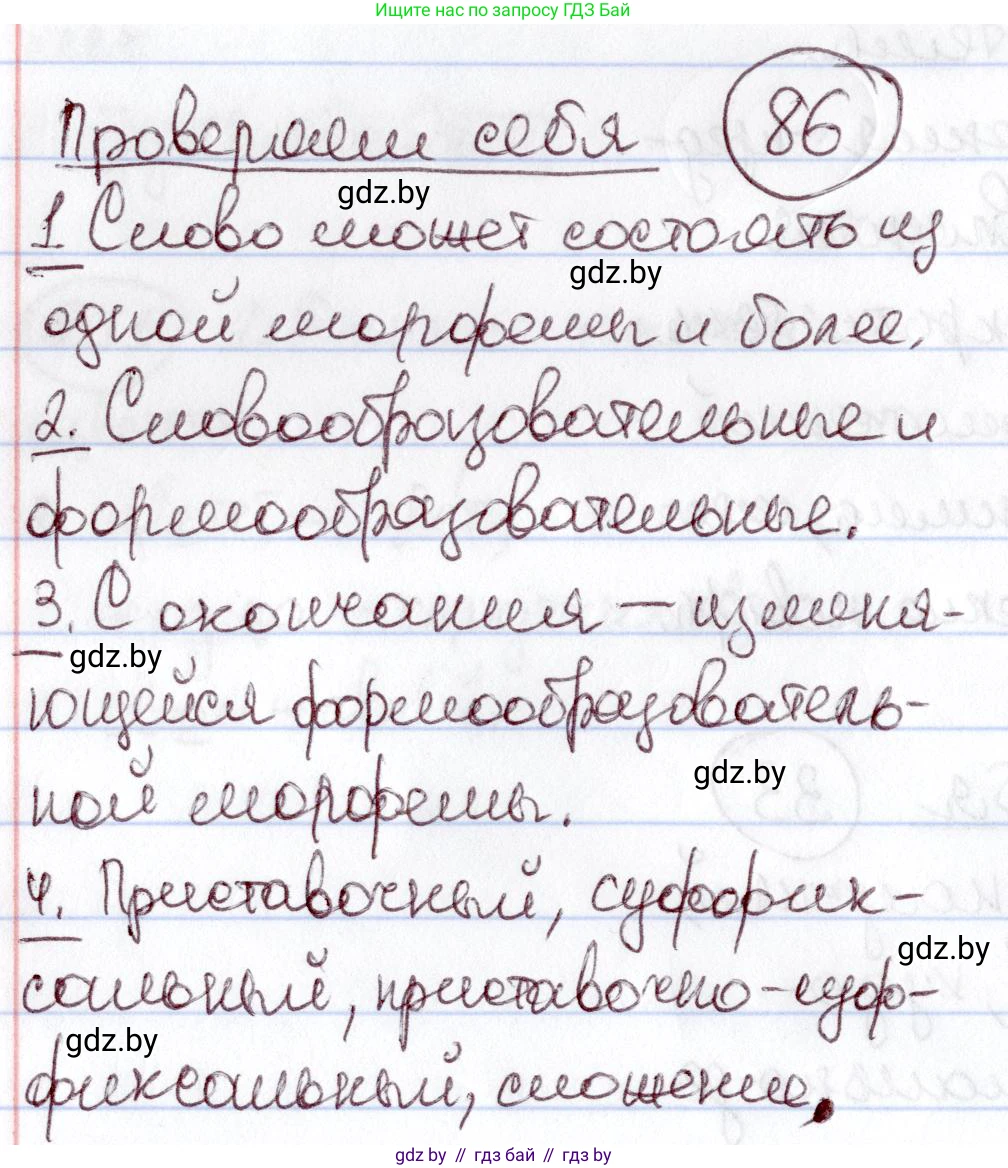 Ищите нас по запросу ГДЗ Бай
Проверяем себя 86
gdz.by
1 Слово может состоять из
gdz.by
одной морфемы и более.
2. Словообразовательные и
формообразовательные.
3. С окончания — изменя-
gdz.by
ющейся формообразователь-
gdz.by
ной морфемы.
4. Приставочный, суффик-
gdz.by
сальный, приставочно-суф-
gdz.by
фиксальный, сложение.
gdz.by // гдз бай // гдз by